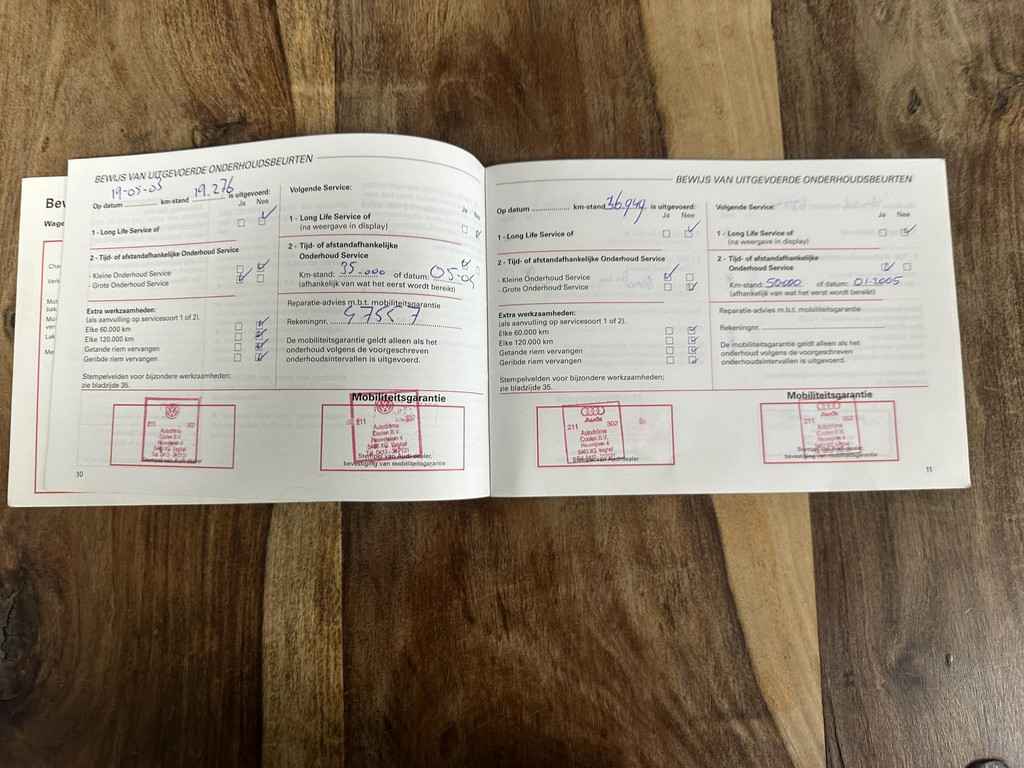 Be
Wage
BEWIJS VAN UITGEVOERDE ONDERHOUDSBEURTEN
19-05-03 19.276
Op datum ............ km-stand ............ is uitgevoerd:
Ja Nee
1 - Long Life Service of
2 - Tijd- of afstandafhankelijke Onderhoud Service
- Kleine Onderhoud Service
- Grote Onderhoud Service
Extra werkzaamheden:
(als aanvulling op servicesoort 1 of 2).
Elke 60.000 km
Elke 120.000 km
Getande riem vervangen
Geribde riem vervangen
Stempelvelden voor bijzondere werkzaamheden;
zie bladzijde 35.
211 302
Autodrôme
Coolen B.V.
Stempel van Audi-dealer
10
Volgende Service:
Ja Nee
1 - Long Life Service of
(na weergave in display)
2 - Tijd- of afstandafhankelijke
Onderhoud Service
Km-stand: 35.000 of datum: 05-04
(afhankelijk van wat het eerst wordt bereikt)
Reparatie-advies m.b.t. mobiliteitsgarantie
Rekeningnr. 47557
De mobiliteitsgarantie geldt alleen als het
onderhoud volgens de voorgeschreven
onderhoudsintervallen is uitgevoerd.
Mobiliteitsgarantie
211 302
Autodrôme
Coolen B.V.
Stempel van Audi-dealer,
bevestiging van mobiliteitsgarantie
BEWIJS VAN UITGEVOERDE ONDERHOUDSBEURTEN
Op datum ............ km-stand 36.949 is uitgevoerd:
Ja Nee
1 - Long Life Service of
2 - Tijd- of afstandafhankelijke Onderhoud Service
- Kleine Onderhoud Service
- Grote Onderhoud Service
Extra werkzaamheden:
(als aanvulling op servicesoort 1 of 2).
Elke 60.000 km
Elke 120.000 km
Getande riem vervangen
Geribde riem vervangen
Stempelvelden voor bijzondere werkzaamheden;
zie bladzijde 35.
Audi
211 302
Autodrôme
Coolen B.V.
Stempel van Audi-dealer
Volgende Service:
Ja Nee
1 - Long Life Service of
(na weergave in display)
2 - Tijd- of afstandafhankelijke
Onderhoud Service
Km-stand: 50000 of datum: 01-2005
(afhankelijk van wat het eerst wordt bereikt)
Reparatie-advies m.b.t. mobiliteitsgarantie
Rekeningnr. ............
De mobiliteitsgarantie geldt alleen als het
onderhoud volgens de voorgeschreven
onderhoudsintervallen is uitgevoerd.
Mobiliteitsgarantie
Audi
211 302
Autodrôme
Coolen B.V.
Stempel van Audi-dealer,
bevestiging van mobiliteitsgarantie
11